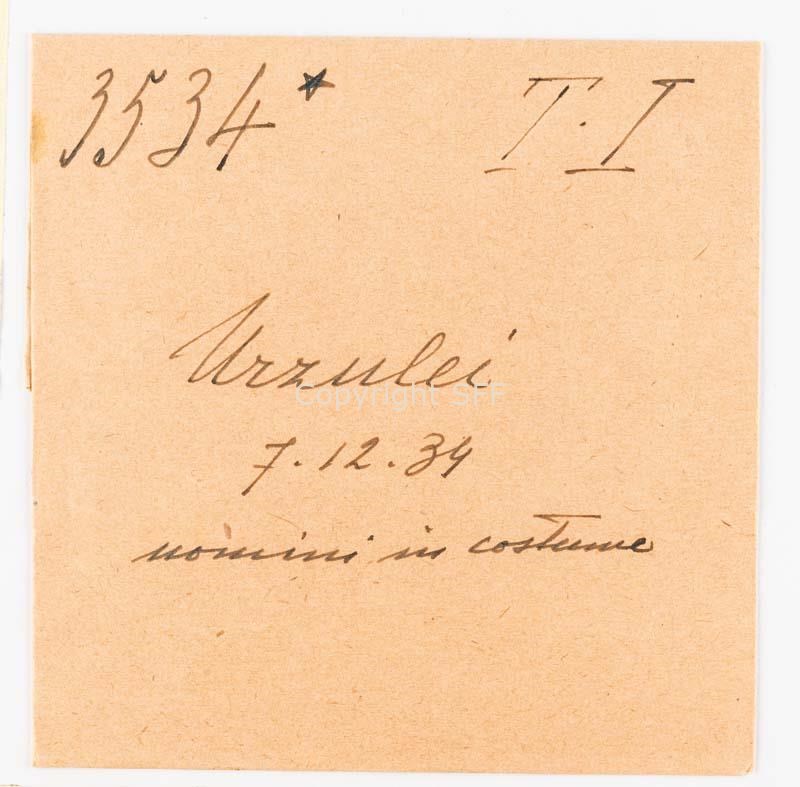 3534* T.I
Urzulei
Copyright SFF
7.12.34
uomini in costume